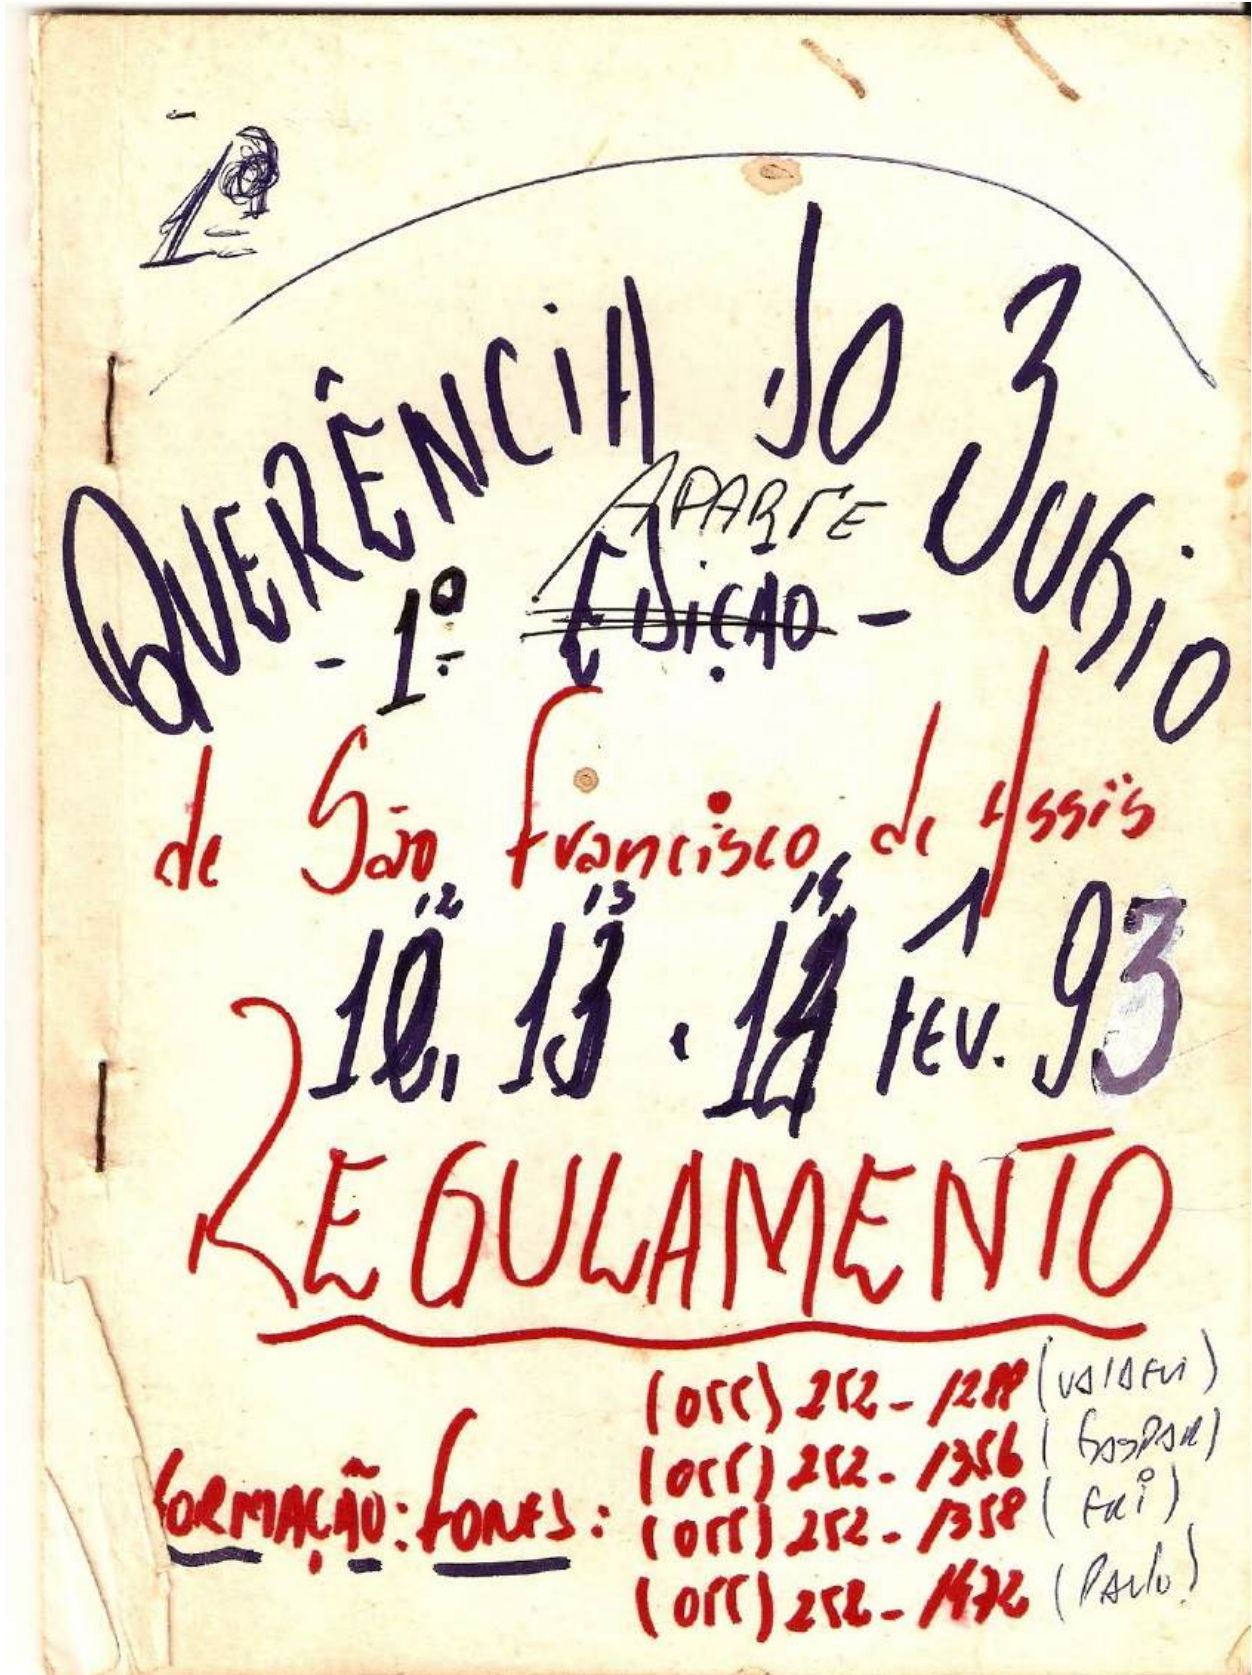 1º
QUERÊNCIA do
3
BUGIO
APARTE
- 1º EDIÇÃO -
de São Francisco de Assis
12 13 14
12. 13. 14 FEV. 93
REGULAMENTO
FORMAÇÃO: FONES:
(055) 252-1288
(055) 252-1356 (GASPAR)
(055) 252-1358
(055) 252-1472 (PAULO)